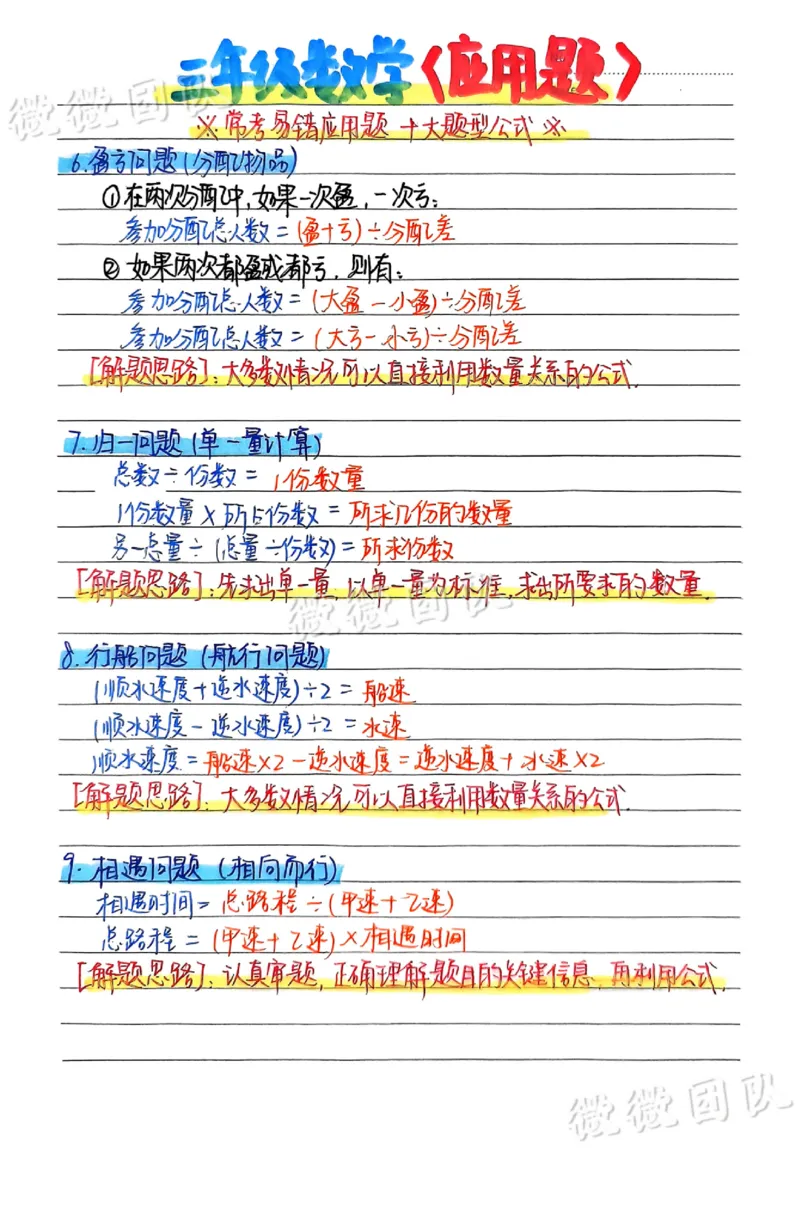 三年级数学（应用题）
微微团队
※常考易错应用题 十大题型公式※
6.盈亏问题(分配物品)
①在两次分配中,如果一次盈,一次亏:
参加分配总人数=(盈+亏)÷分配差
②如果两次都盈或都亏,则有:
参加分配总人数=(大盈-小盈)÷分配差
参加分配总人数=(大亏-小亏)÷分配差
[解题思路]:大多数情况可以直接利用数量关系的公式.
7.归一问题(单一量计算)
总数÷份数=1份数量
1份数量×所占份数=所求几份的数量
另一总量÷(总量÷份数)=所求份数
[解题思路]:先求出单一量,以单一量为标准,求出所要求的数量.
微微团队
8.行船问题(航行问题)
(顺水速度+逆水速度)÷2=船速
(顺水速度-逆水速度)÷2=水速
顺水速度=船速×2-逆水速度=逆水速度+水速×2
[解题思路]:大多数情况可以直接利用数量关系的公式.
9.相遇问题(相向而行)
相遇时间=总路程÷(甲速+乙速)
总路程=(甲速+乙速)×相遇时间
[解题思路]:认真审题,正确理解题目的关键信息,再利用公式.
微微团队